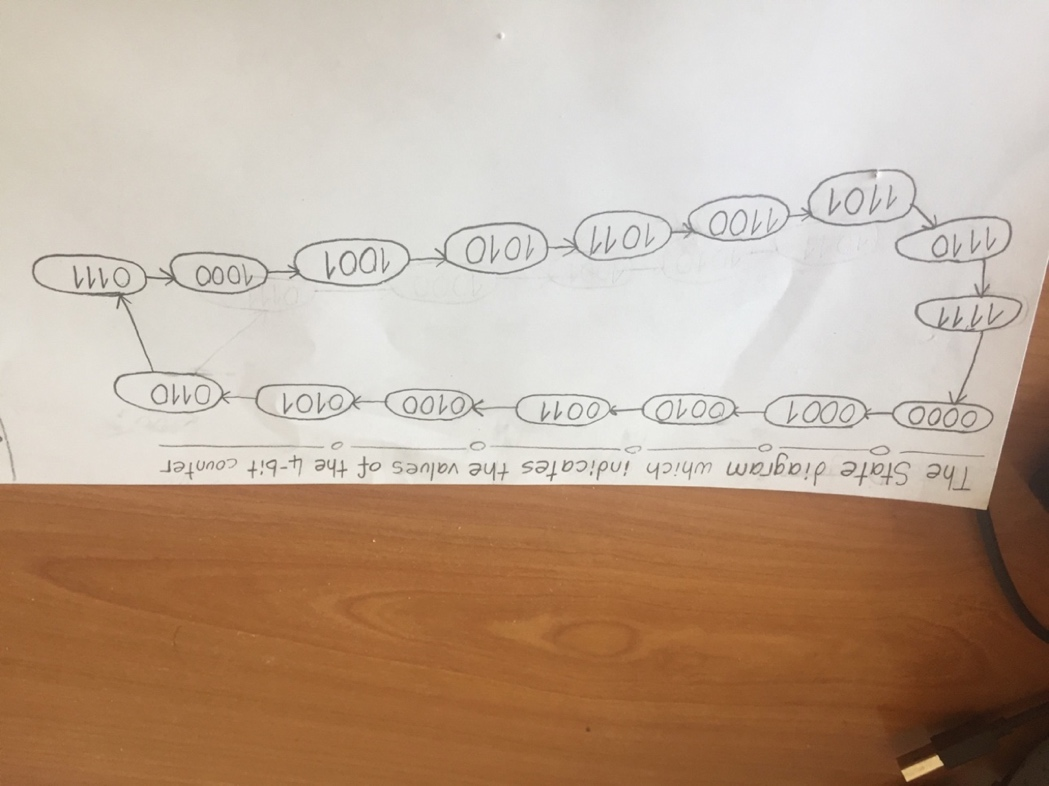 The State diagram which indicates the values of the 4-bit counter
0000 0001 0010 0011 0100 0101 0110
1111
1110 1101 1100 1011 1010 1001 1000 0111